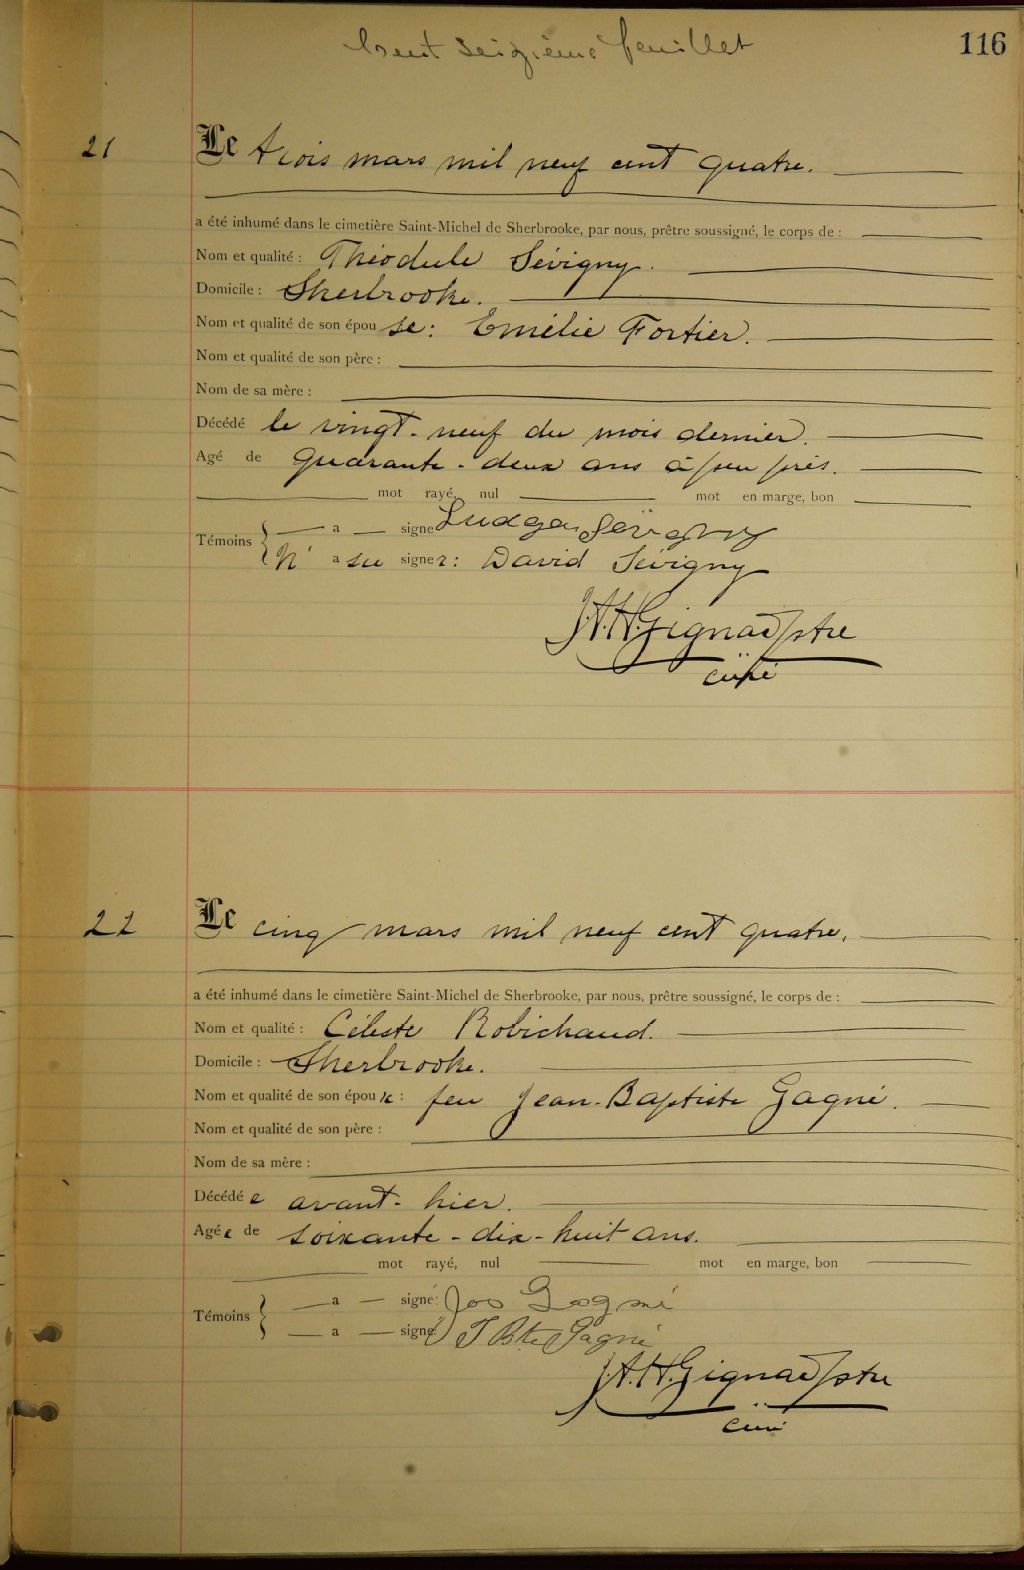 Cent seizième feuillet
116
21
Le trois mars mil neuf cent quatre.
a été inhumé dans le cimetière Saint-Michel de Sherbrooke, par nous, prêtre soussigné, le corps de :
Nom et qualité : Théodule Sévigny.
Domicile : Sherbrooke.
Nom et qualité de son épouse : Emélie Fortier.
Nom et qualité de son père :
Nom de sa mère :
Décédé le vingt-neuf du mois dernier.
Agé de quarante-deux ans à peu près.
mot rayé, nul mot en marge, bon
Témoins { a signé Ludger Sévigny
N' a su signer : David Sévigny
J.A.H. Gignac ptre
curé
22
Le cinq mars mil neuf cent quatre.
a été inhumé dans le cimetière Saint-Michel de Sherbrooke, par nous, prêtre soussigné, le corps de :
Nom et qualité : Céleste Robichaud.
Domicile : Sherbrooke.
Nom et qualité de son époux : feu Jean-Baptiste Gagné.
Nom et qualité de son père :
Nom de sa mère :
Décédée avant-hier.
Agée de soixante-dix-huit ans.
mot rayé, nul mot en marge, bon
Témoins { a signé: Jos Gagné
a signé: J Bte Gagné
J.A.H. Gignac ptre
curé